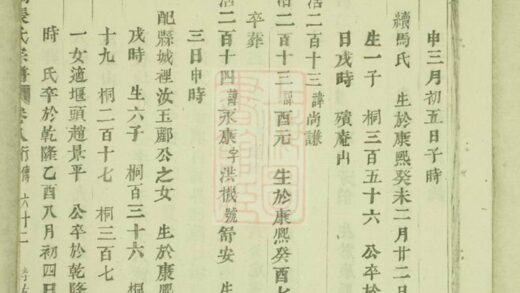 申三月初五日子時
續馬氏 生於康熙癸未二月廿二日
生一子 桐三百五十六 公卒於
日戌時 殯庵山
活二百十三 諱尚謙
活二百十三 諱酉元 生於康熙癸酉七
卒葬
三日申時
活二百十四 諱永康 字洪機 號舒安 生
配縣城裡汝玉酈公之女 生於康熙
戌時 生六子 桐百三十六 桐
十九 桐二百十七 桐三百七
一女適堰頭趙景平 公卒於乾隆
時 氏卒於乾隆乙酉八月初四日
氏宗譜 卷八 行傳 六十二